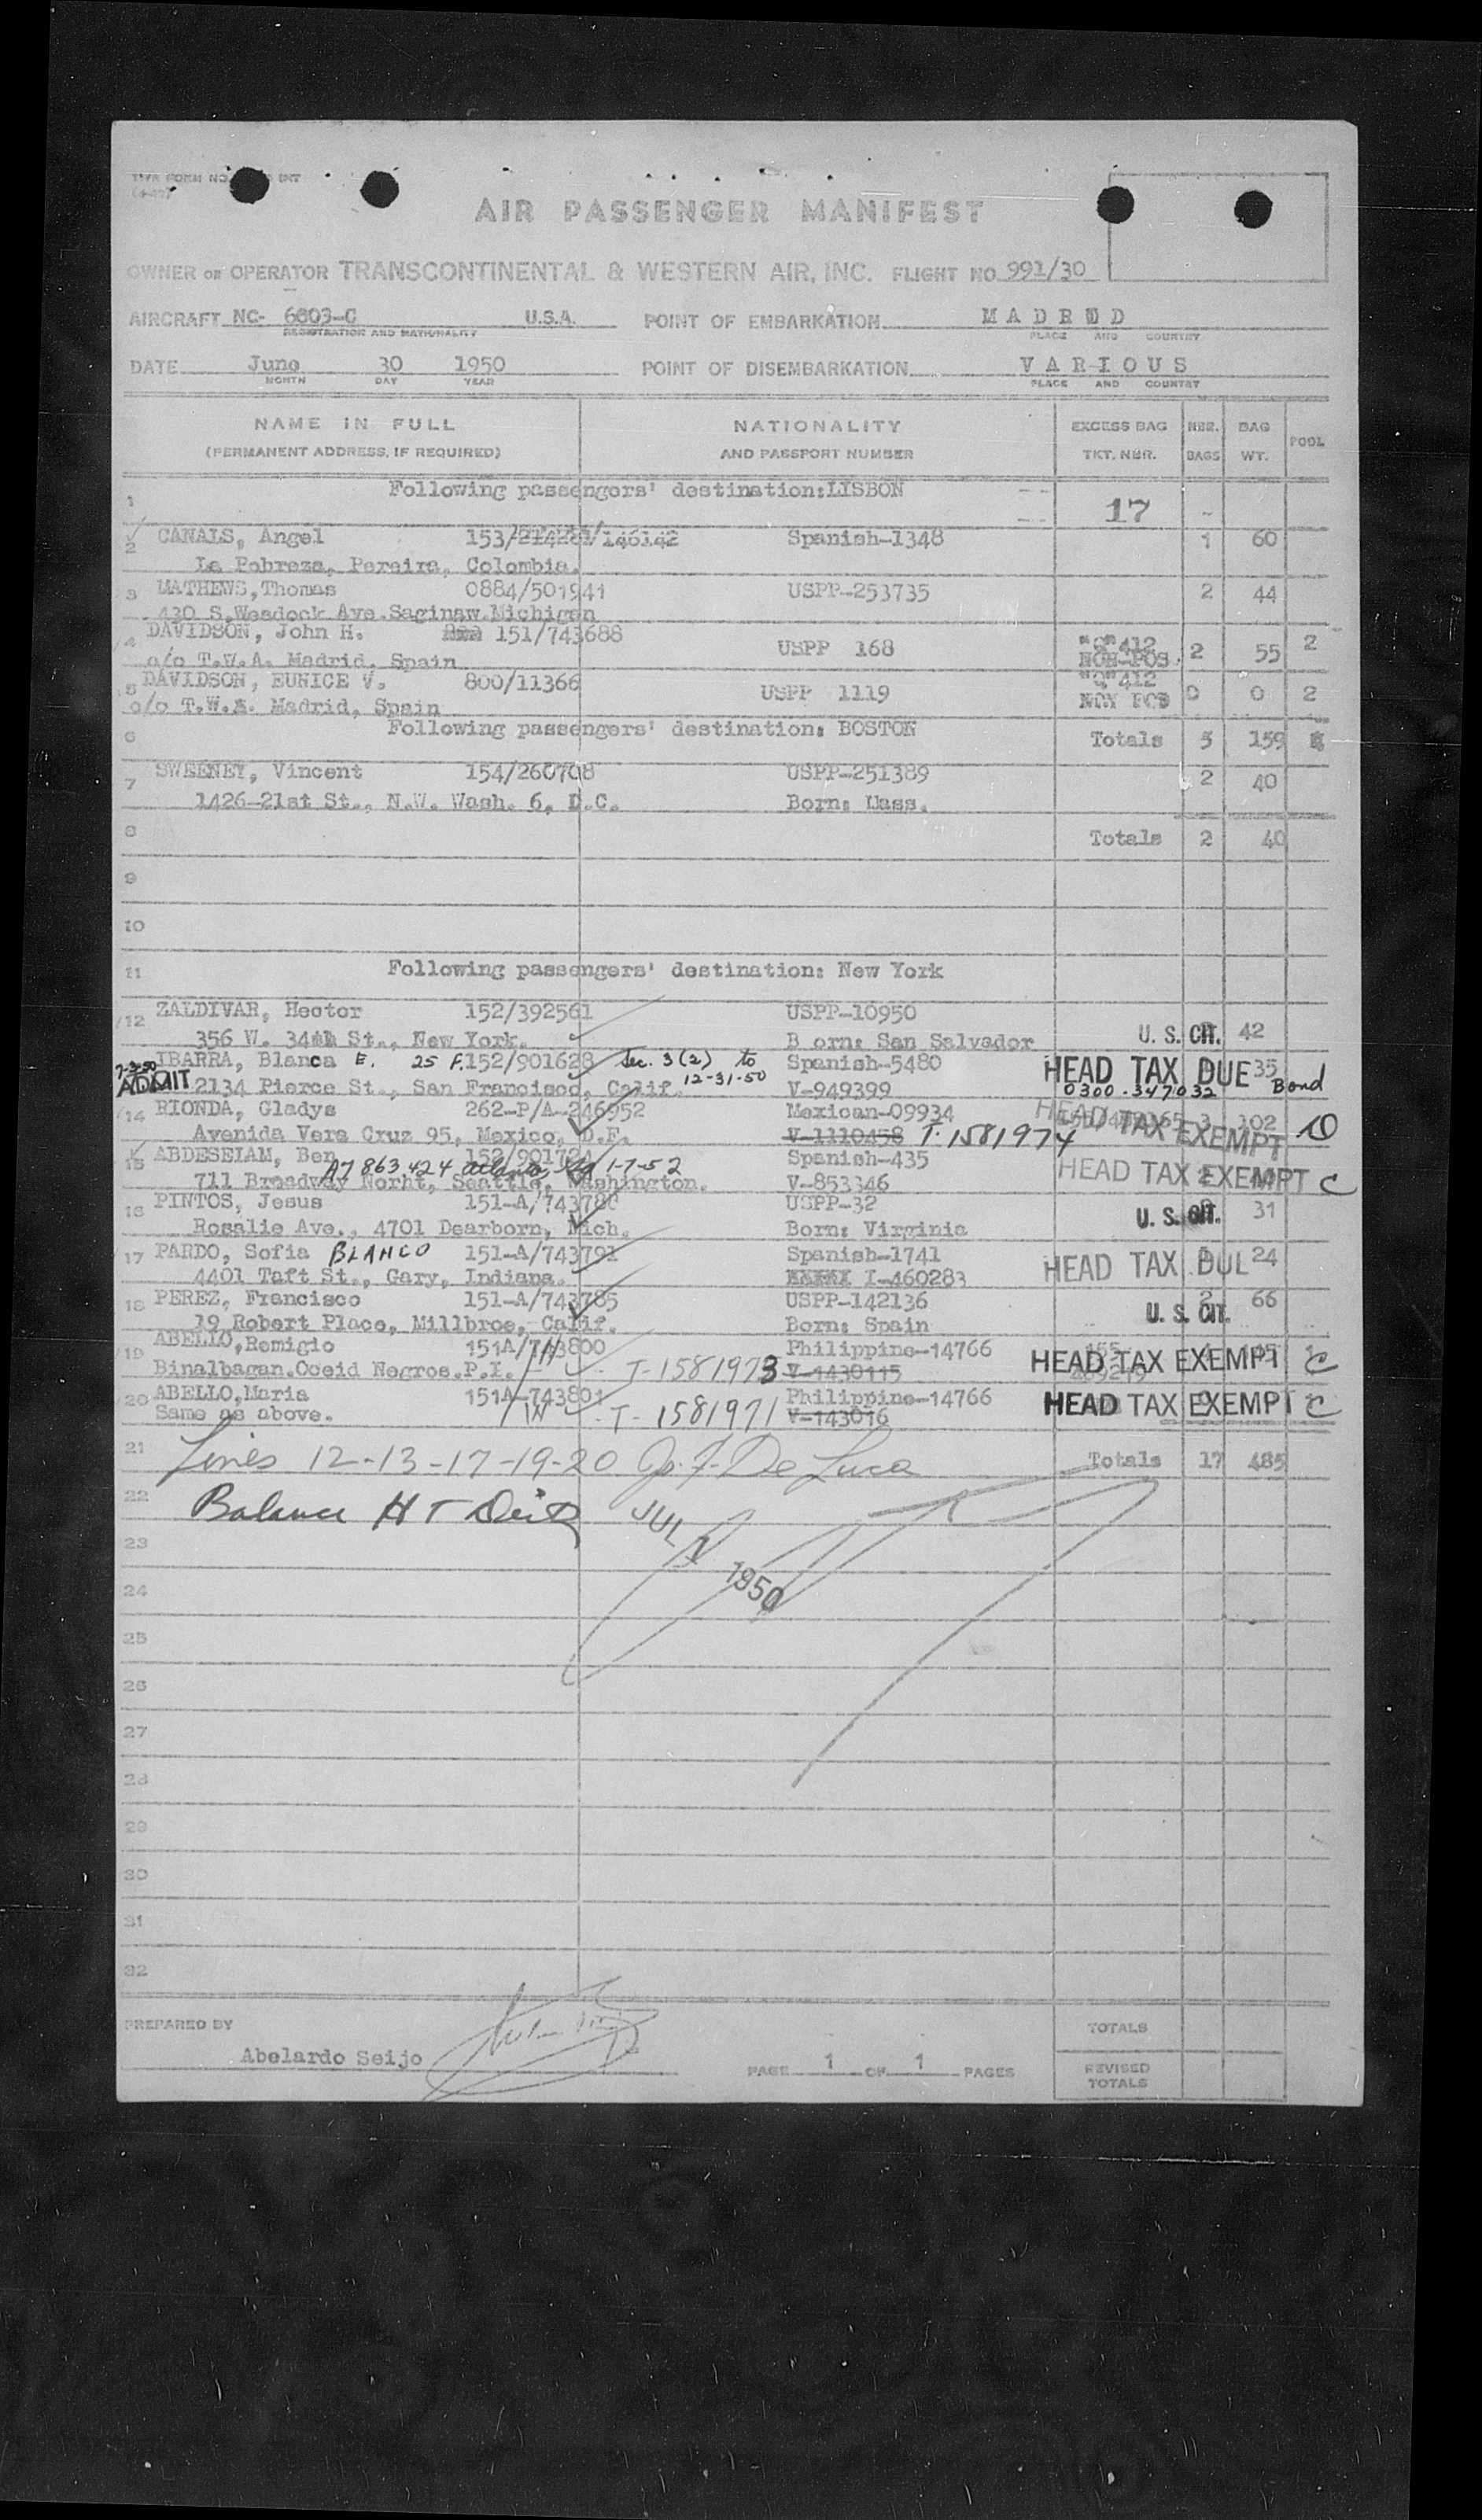 TWA FORM NO. INT
AIR PASSENGER MANIFEST
OWNER OR OPERATOR TRANSCONTINENTAL & WESTERN AIR, INC. FLIGHT NO 991/30
AIRCRAFT NC- 6003-C U.S.A. POINT OF EMBARKATION M A D R D
REGISTRATION AND NATIONALITY PLACE AND COUNTRY
DATE June 30 1950 POINT OF DISEMBARKATION V A R I O U S
MONTH DAY YEAR PLACE AND COUNTRY
NAME IN FULL NATIONALITY EXCESS BAG NBR. BAG POOL
(PERMANENT ADDRESS, IF REQUIRED) AND PASSPORT NUMBER TKT. NBR. BAGS WT.
1 Following passengers' destination:LISBON
17
2 CANALS, Angel 153/214281/146142 Spanish-1348 1 60
La Pobreza, Pereira, Colombia.
3 MATHEWS,Thomas 0884/501941 USPP-253735 2 44
430 S.Weadock Ave.Saginaw.Michigan
4 DAVIDSON, John H. 151/743688 USPP 168 "Q" 412 NON-POS 2 55 2
c/o T.W.A. Madrid, Spain
5 DAVIDSON, EUNICE V. 800/11366 USPP 1119 "Q" 412 0 0 2
c/o T.W.A. Madrid, Spain
6 Following passengers' destination: BOSTON Totals 5 159
7 SWEENEY, Vincent 154/260708 USPP-251389 2 40
1426-21st St., N.W. Wash. 6, D.C. Born: Mass.
8 Totals 2 40
9
10
11 Following passengers' destination: New York
12 ZALDIVAR, Hector 152/392561 USPP-10950
356 W. 34th St., New York. B orn: San Salvador U. S. CIT. 42
7-3-50 IBARRA, Blanca E. 25 F. 152/901628 Sec. 3(2) to Spanish-5480 HEAD TAX DUE 35
ADMIT 2134 Pierce St., San Francisco, Calif. 12-31-50 V-949399 0300-347032 Bond
14 RIONDA, Gladys 262-P/A-246952 Mexican-09934 3 102
Avenida Vera Cruz 95, Mexico, D.F. V-1110458 T-1581974 HEAD TAX EXEMPT
15 ABDESEIAM, Ben 152/901724 Spanish-435
A7 863 424 Atlanta, 1-7-52
711 Broadway Norht, Seattle, Washington. V-853346 HEAD TAX EXEMPT C
16 PINTOS, Jesus 151-A/743780 USPP-32
Rosalie Ave., 4701 Dearborn, Mich. Born: Virginia U. S. CIT. 31
17 PARDO, Sofia BLANCO 151-A/743791 Spanish-1741
4401 Taft St., Gary, Indiana. I-460283 HEAD TAX DUE 24
18 PEREZ, Francisco 151-A/743785 USPP-142136 2 66
19 Robert Place, Millbroe, Calif. Born: Spain U. S. CIT.
19 ABELLO,Remigio 151A/743800 Philippine-14766
Binalbagan.Occid Negros.P.I. T-1581973 V-1430115 HEAD TAX EXEMPT C
20 ABELLO,Maria 151A-743801 Philippine-14766
Same as above. T-1581971 V-143016 HEAD TAX EXEMPT C
21 Lines 12-13-17-19-20 De Luca Totals 17 485
22 Balance H T
JUL 1 1950
23
24
25
26
27
28
29
30
31
32
PREPARED BY TOTALS
Abelardo Seijo
PAGE 1 OF 1 PAGES REVISED TOTALS